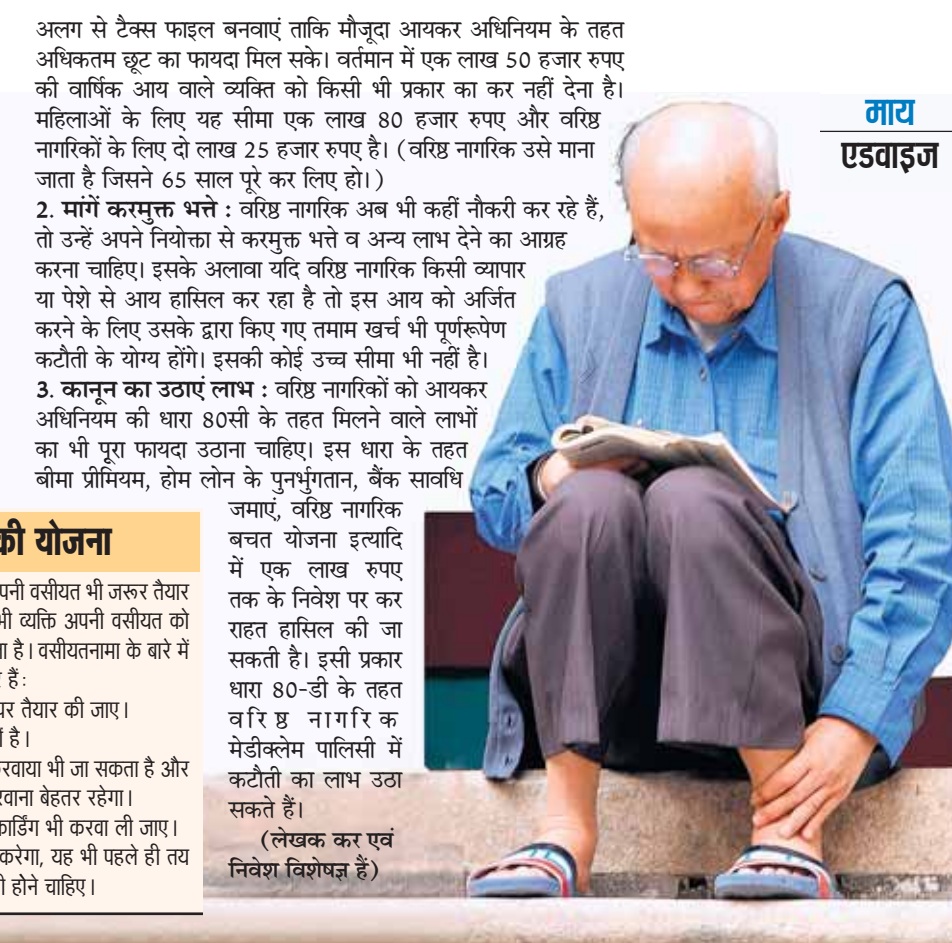 अलग से टैक्स फाइल बनवाएं ताकि मौजूदा आयकर अधिनियम के तहत
अधिकतम छूट का फायदा मिल सके। वर्तमान में एक लाख 50 हजार रुपए
की वार्षिक आय वाले व्यक्ति को किसी भी प्रकार का कर नहीं देना है।
महिलाओं के लिए यह सीमा एक लाख 80 हजार रुपए और वरिष्ठ
नागरिकों के लिए दो लाख 25 हजार रुपए है। (वरिष्ठ नागरिक उसे माना
जाता है जिसने 65 साल पूरे कर लिए हो।)
2. मांगें करमुक्त भत्ते : वरिष्ठ नागरिक अब भी कहीं नौकरी कर रहे हैं,
तो उन्हें अपने नियोक्ता से करमुक्त भत्ते व अन्य लाभ देने का आग्रह
करना चाहिए। इसके अलावा यदि वरिष्ठ नागरिक किसी व्यापार
या पेशे से आय हासिल कर रहा है तो इस आय को अर्जित
करने के लिए उसके द्वारा किए गए तमाम खर्च भी पूर्णरूपेण
कटौती के योग्य होंगे। इसकी कोई उच्च सीमा भी नहीं है।
3. कानून का उठाएं लाभ : वरिष्ठ नागरिकों को आयकर
अधिनियम की धारा 80सी के तहत मिलने वाले लाभों
का भी पूरा फायदा उठाना चाहिए। इस धारा के तहत
बीमा प्रीमियम, होम लोन के पुनर्भुगतान, बैंक सावधि
जमाएं, वरिष्ठ नागरिक
बचत योजना इत्यादि
में एक लाख रुपए
तक के निवेश पर कर
राहत हासिल की जा
सकती है। इसी प्रकार
धारा 80-डी के तहत
वरिष्ठ नागरिक
मेडीक्लेम पालिसी में
कटौती का लाभ उठा
सकते हैं।
(लेखक कर एवं
निवेश विशेषज्ञ हैं)
की योजना
पनी वसीयत भी जरूर तैयार
भी व्यक्ति अपनी वसीयत को
है। वसीयतनामा के बारे में
हैं:
पर तैयार की जाए।
है।
करवाया भी जा सकता है और
रवाना बेहतर रहेगा।
कार्डिंग भी करवा ली जाए।
करेगा, यह भी पहले ही तय
होने चाहिए।
माय
एडवाइज